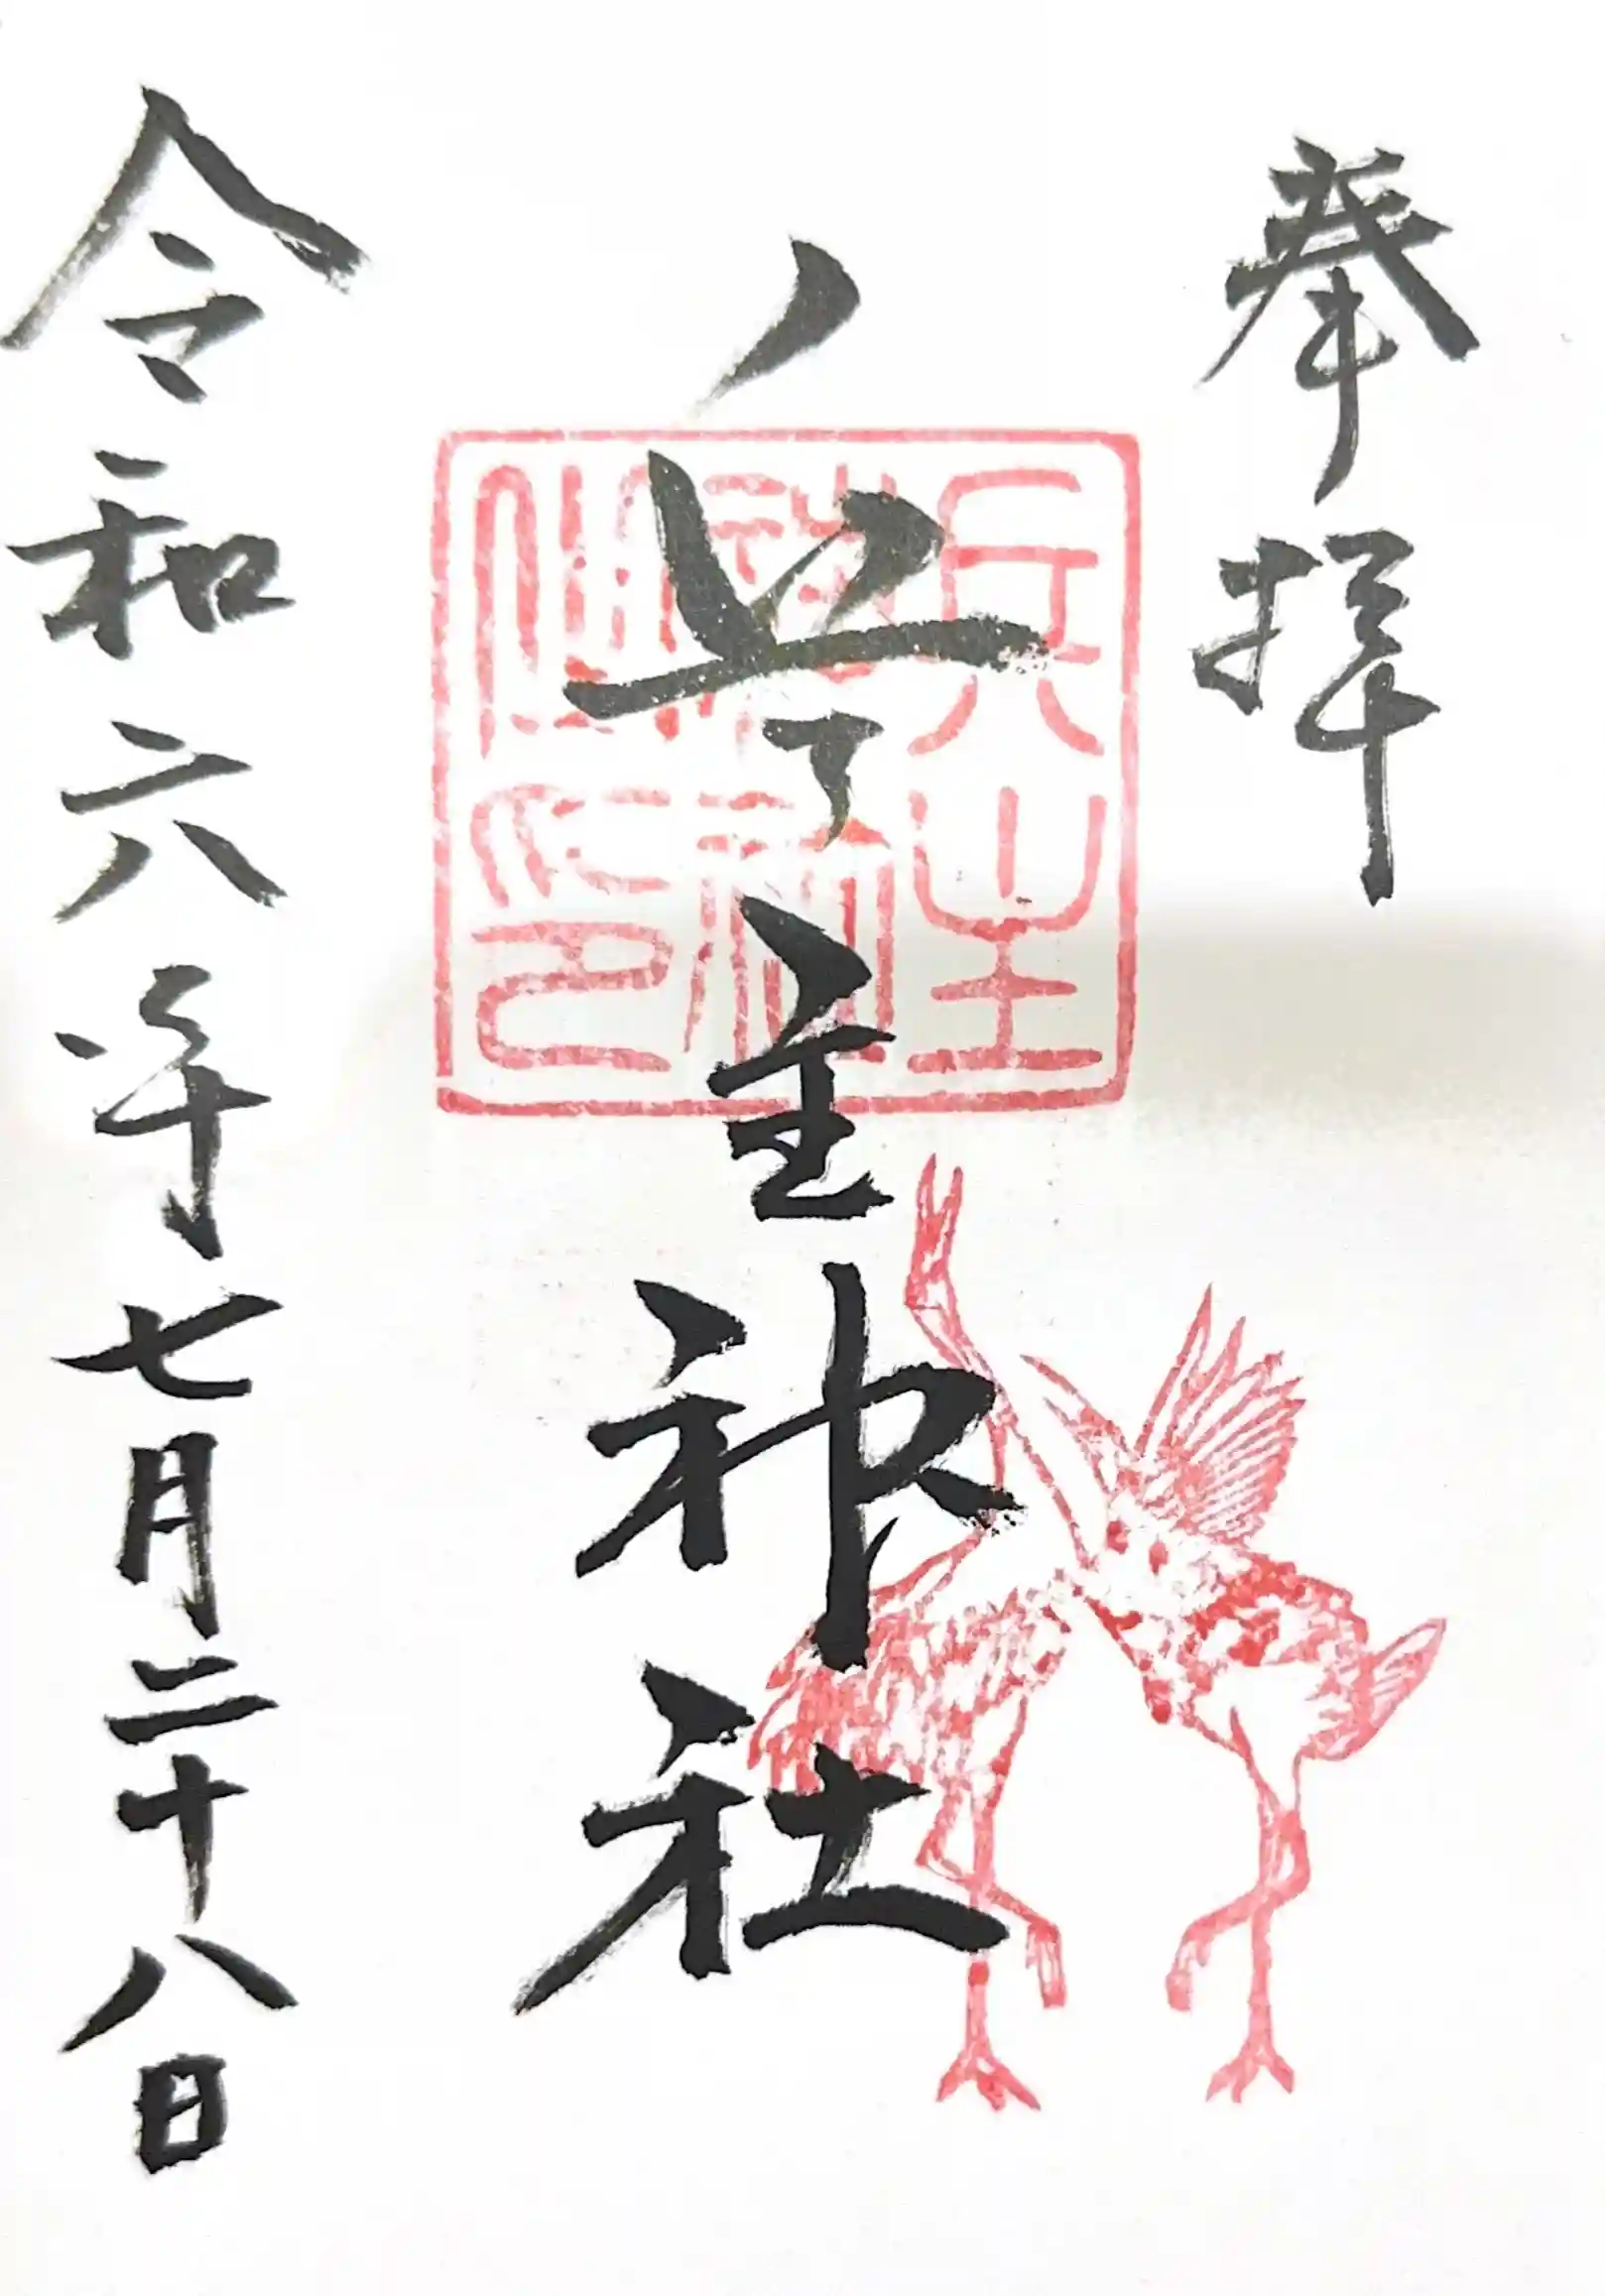 奉拝
兵主神社
令和六年七月二十八日